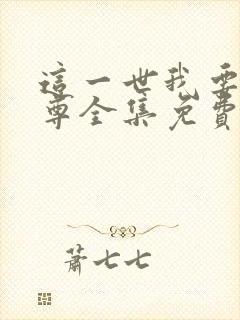 這一世我要
尊全集免費
蕭七七